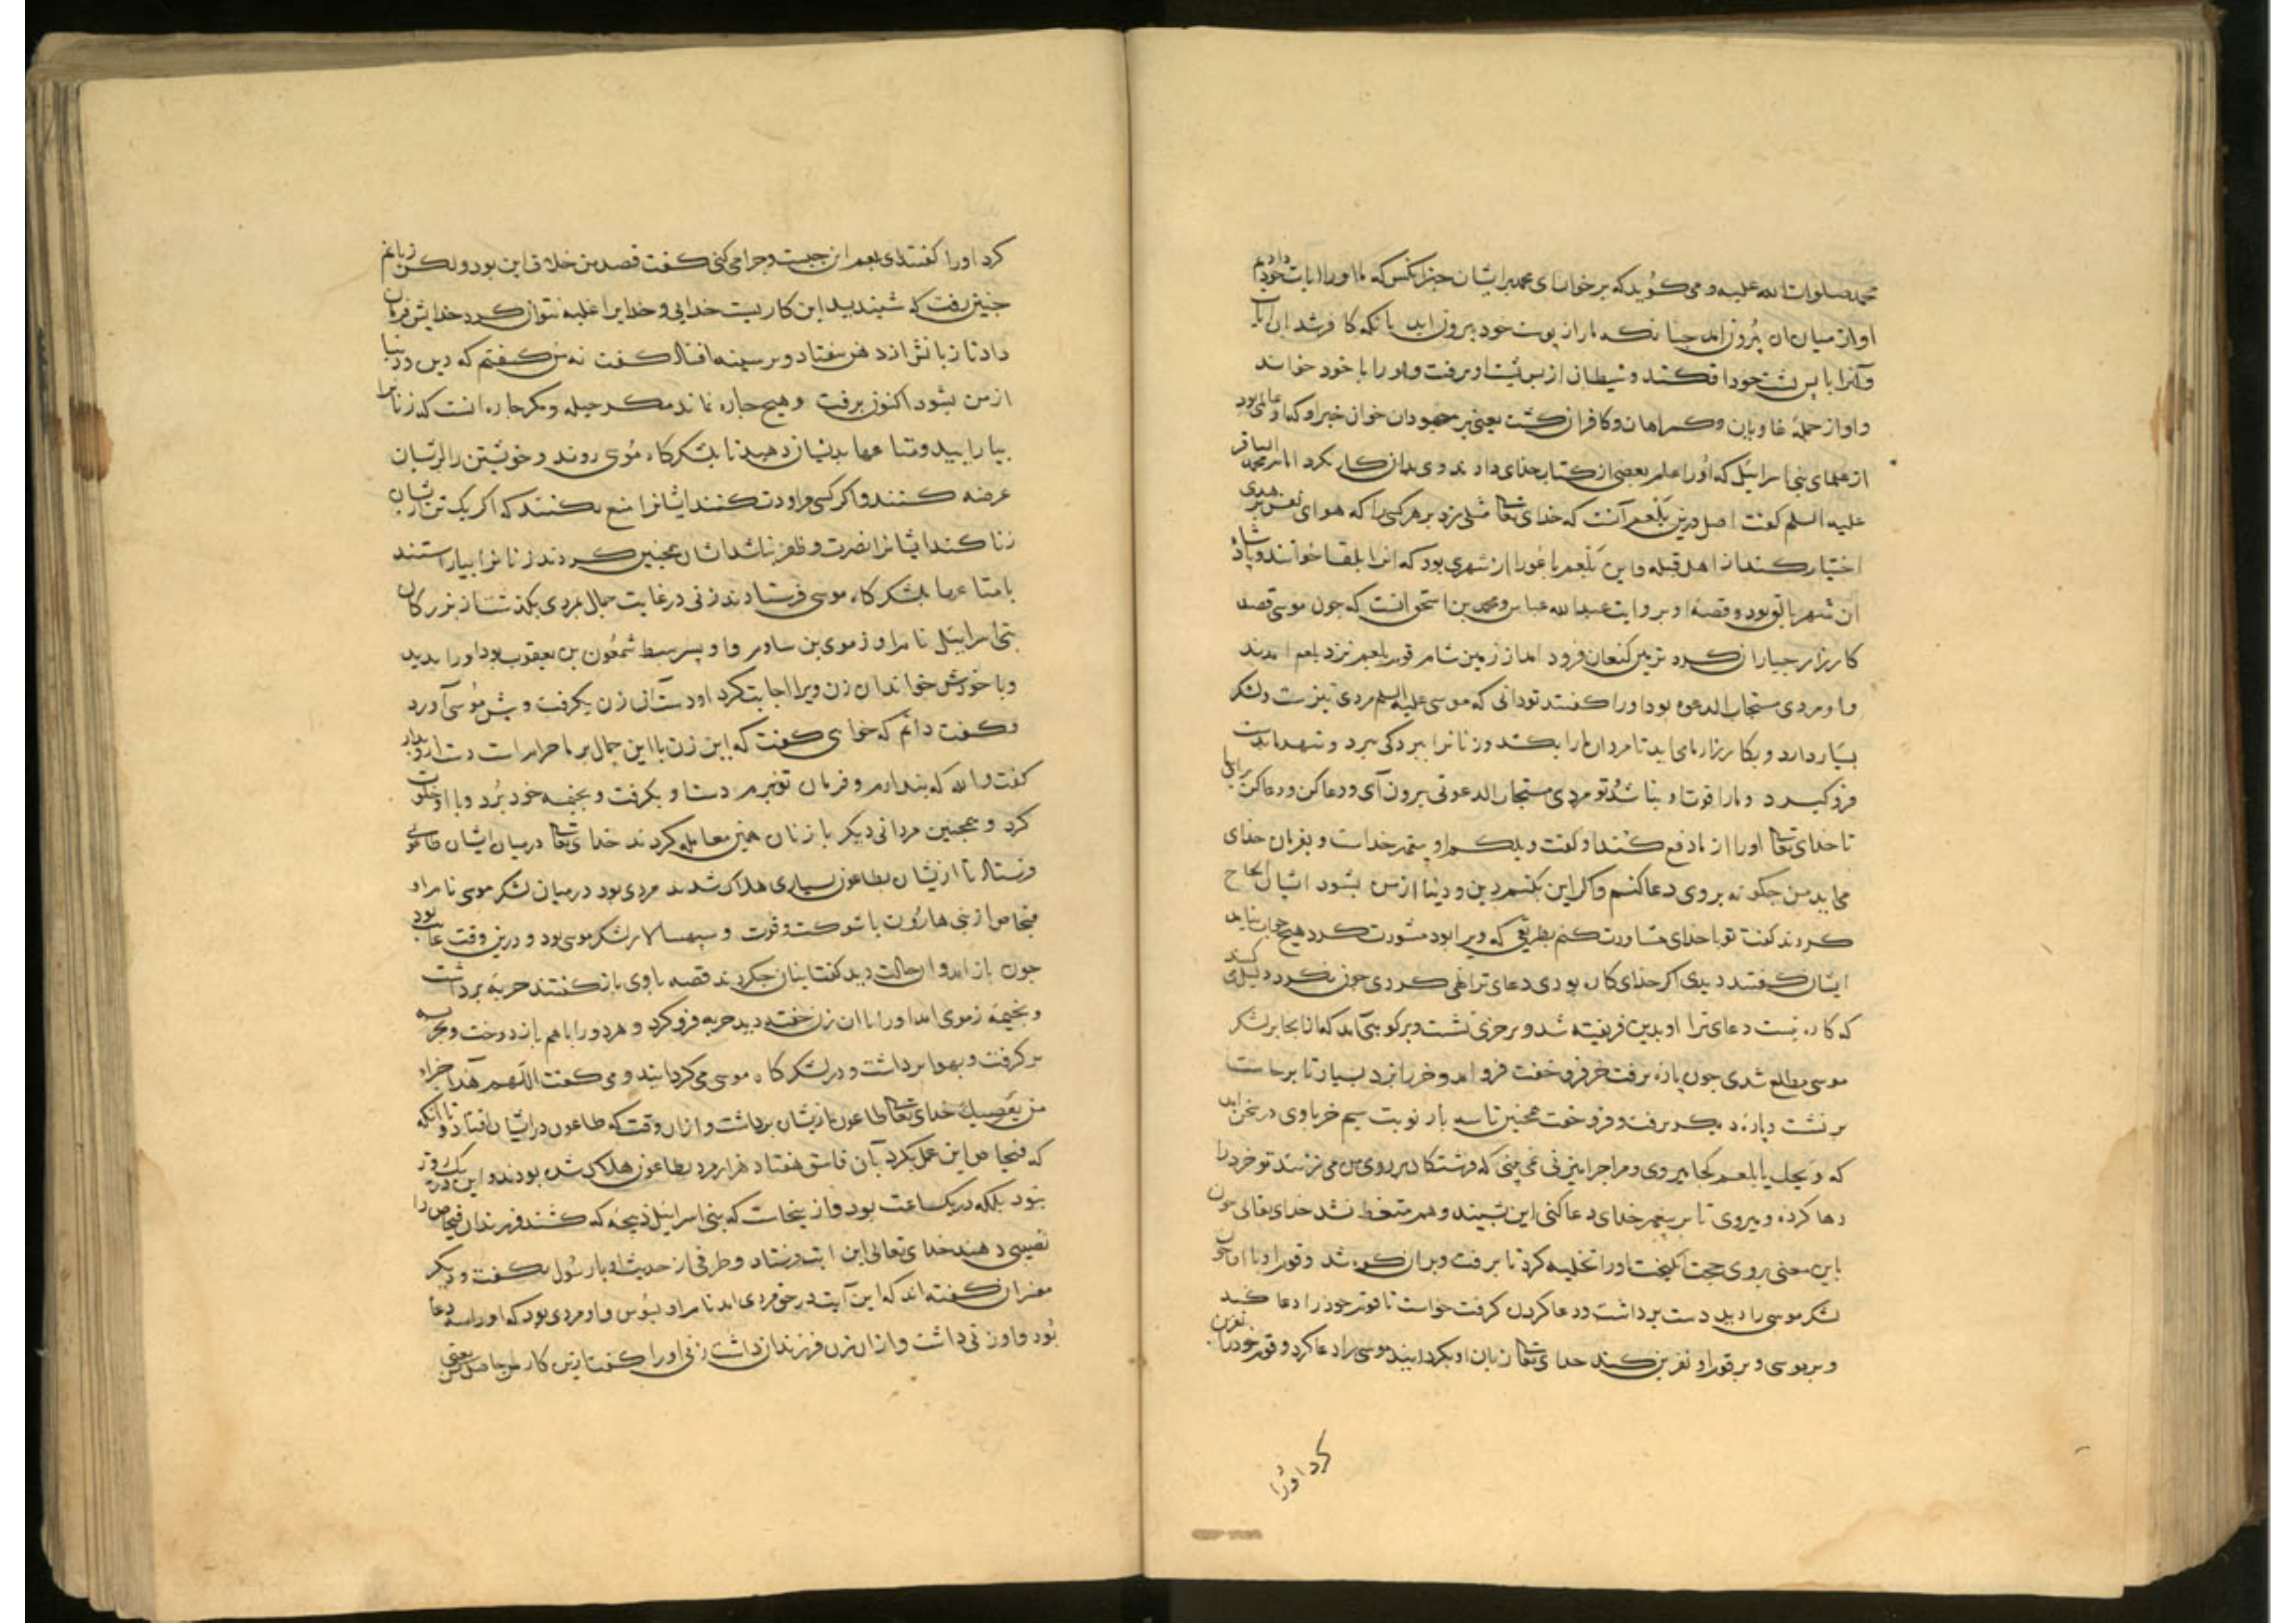 محمد صلوات الله علیه و می کوید که برخوان ای محمد برایشان خبر انکس که ما او را ایات خود دادیم
او از میان ان بیرون امد چنانکه مار از پوست خود بیرون اید بانکه کافر شد بان آیات
وآنرا با پس پشت خود افکند و شیطان از پس پشت او برفت واو را با خود خواند
واو از جمله غاویان وکمراهان وکافران کشت یعنی بر جهودان خوان خبر او که او عالمی بود
از علمای بنی اسرایل که او را علم بعضی از کتاب خدای دادند و وی بدان کار نکرد امام محمد الباقر
علیه السلم کفت اصل درین بلعم آنست که خدای تعا مثلی زد بر هر کسی را که هوای نفس بر هدی
اختیار کند از اهل قبله واین بلعم باعورا از شهری بود که انرا بلقا خوانند و پادشاه
ان شهر بالق بود و قصه او بروایت عبدالله عباس ومحمد بن اسحق انست که چون موسی قصد
کارزار جباران کرد بزمین کنعان فرود امد از زمین شام قوم بلعم نزد بلعم امدند
واو مردی مستجاب الدعوه بود او را کفتند تو دانی که موسی علیه السلم مردی تیزست ولشکر
بسیار دارد و بکارزار ما می اید تا مردان ما را بکشد وزنان را ببردکی ببرد و شهر ما بدست
فرو کیرد و ما را قوت او نباشد تو مردی مستجاب الدعوتی بیرون آی ودعا کن ودعا کن برایشان
تا خدای تعا او را از ما دفع کند او کفت ویلکم او پیغمبر خداست و بفرمان خدای
می اید من چکونه بر وی دعا کنم واکر این بکنم دین و دنیا از من بشود ایشان الحاح
کردند کفت تو با خدای مشاورت کنم بطریقی که ویرا بود مشورت کرد هیچ جواب نیامد
ایشان کفتند دیدی اکر خدای کاره بودی دعای ترا نهی کردی چون نکرد دلیل می کند
که کاره نیست دعای ترا او بدین فریفته شد و بر خری نشست وبرکوهی آمد که از انجا بر لشکر
موسی مطلع شدی چون پاره برفت خر فرو خفت فرو امد و خر را بزد بسیار تا برخاست
برنشست و پاره دیکر برفت و فرو خفت همچنین تا سه بار نوبت سیم خر با وی در سخن امد
که ویحک یا بلعم کجا میروی و مرا چرا میزنی نمی بینی که فرشتکان بر روی من می زنند تو خر را
رها کرده و میروی تا بر پیغمبر خدای دعا کنی این بشنید و هم متعظ نشد خدای تعالی چون
باین معنی بر وی حجت انکیخت او را تخلیه کرد تا برفت وبر ان کوه شد و قوم او با او چون
لشکر موسی را دید دست برداشت ودعا کردن کرفت خواست تا قوم خود را دعا کند
وبر موسی و بر قوم او نفرین کند خدای تعا زبان او بکردانید موسی را دعا کرد و قوم خود را نفرین
کرد او را
کرد او را کفتند ای بلعم این چیست و چرا می کنی کفت قصد من خلاف این بود ولکن زبانم
چنین رفت که شنیدید این کاریست خدایی و خدایرا غلبه نتوان کرد خدایش فرمان
داد تا زبانش از دهن بیفتاد و بر سینه افتاد کفت نه من کفتم که دین ودنیا
از من بشود اکنون برفت وهیچ چاره نماند مکر حیله و مکر چاره انست که زنانرا
بیارایید ومتاعها بدیشان دهید تا بلشکرکاه موسی روند و خویشتن را بریشان
عرضه کنند واکر کسی مراودت کنند ایشانرا منع نکنند که اکر یک تن ازیشان
زنا کند ایشانرا نصرت و ظفر نباشد ایشان همچنین کردند زنانرا بیاراستند
با متاعها بلشکرکاه موسی فرستادند زنی در غایت جمال بمردی بکذشت از بزرکان
بنی اسرایل نام او زموی بن ساوم واو پسر سبط شمعون بن یعقوب بود او را بدید
وبا خودش خواند ان زن ویرا اجابت کرد او دست آن زن بکرفت و پیش موسی آورد
وکفت دانم که خواهی کفت که این زن با این جمال بر ما حرامست دست ازو بدار
کفت والله که بندارم وفرمان تو نبرم دست او بکرفت وبخیمه خود برد وبا او خلوت
کرد و همچنین مردانی دیکر با زنان همین معامله کردند خدای تعا درمیان ایشان طاعونی
فرستاد تا ازیشان بطاعون بسیاری هلاک شدند مردی بود درمیان لشکر موسی نام او
فنحاص از بنی هارون با شوکت و قوت و سپهسالار لشکر موسی بود و درین وقت غایب بود
چون باز امد وان حالت دید کفت اینان چکردند قصه با وی باز کفتند حربه برداشت
و بخیمه زموی امد او را با ان زن خفته دید حربه فرو کرد و هر دو را با هم باز دوخت و بحربه
بر کرفت و بهوا برداشت و در لشکرکاه موسی می کردانید و می کفت اللهم هذا جزاء
من یعصیک خدای تعا طاعون ازیشان برداشت واز ان وقت که طاعون در ایشان افتاد تا انکه
که فنحاص این عمل بکرد بآن فاسق هفتاد هزار مرد بطاعون هلاک شده بودند و این در یک روز
نبود بلکه در یک ساعت بود واز ینجاست که بنی اسرایل ذبیحه که کشند فرزندان فنحاص را
نصیبی دهند خدای تعالی این ایت فرستاد و طرفی از حدیث او با رسول بکفت و دیکر
مفسران کفته اند که این آیت در حق مردی امد نام او بسوس واو مردی بود که او را سه دعا
بود واو زنی داشت واز ان زن فرزندان داشت زن او را کفت ازین کار من حاصل کن یعنی